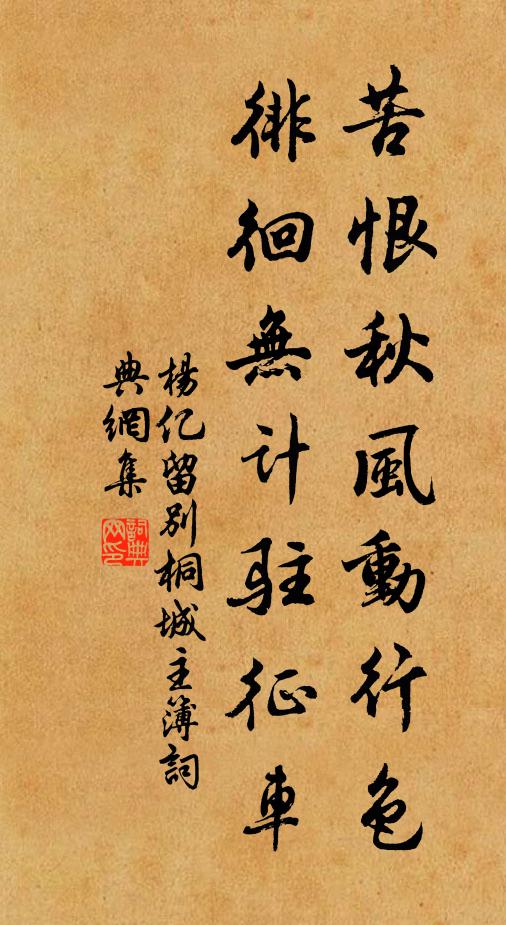 苦恨秋風動行色
徘徊無计駐征車
楊亿留别桐城主簿詞
典網集
詞典網印